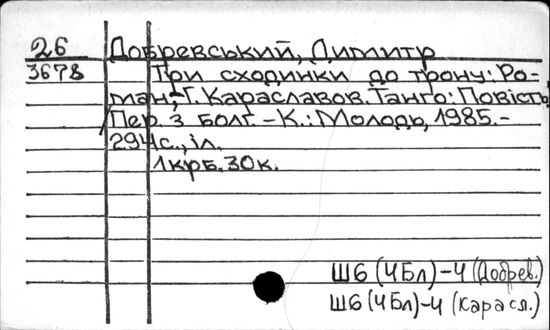 26 Добревський, Димитр
3678 Три сходинки до трону: Ро-
ман; Г. Караславов. Танго: Повість
Пер. з болг. - К.: Молодь, 1985.-
294с., іл.
1крб. 30к.
Ш6(4Бл)-4 (Добрев.)
Ш6(4Бл)-4 (Карасл.)